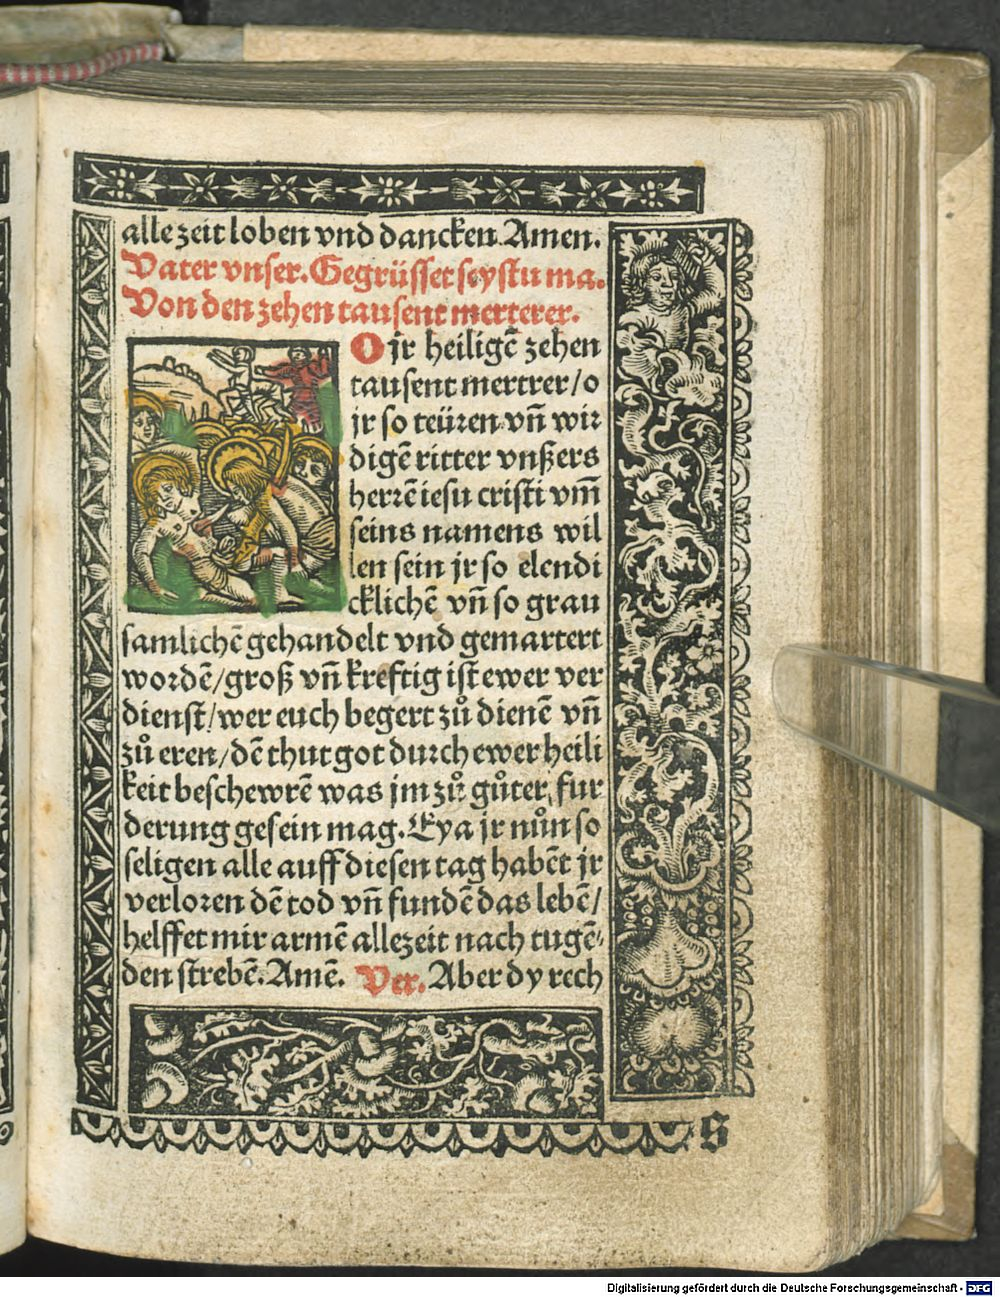 alle zeit loben vnd dancken. Amen.
Vater vnser. Gegrüsset seystu ma.
Von den zehen tausent merterer.
O jr heiligē zehen
tausent mertrer/o
jr so teüren vn̄ wir
digē ritter vnßers
herrē iesu cristi vm̄
seins namens wil
len sein jr so elendi
cklichē vn̄ so grau
samlichē gehandelt vnd gemartert
wordē/groß vn̄ kreftig ist ewer ver
dienst/wer euch begert zů dienē vn̄
zů eren/dē thut got durch ewer heili
keit beschewrē was jm zů gůter, fur
derung gesein mag. Eya jr nůn so
seligen alle auff diesen tag habēt jr
verloren dē tod vn̄ fundē das lebē/
helffet mir armē allezeit nach tugē⸗
den strebē. Amē. Ver. Aber dy rech
S
Digitalisierung gefördert durch die Deutsche Forschungsgemeinschaft - DFG